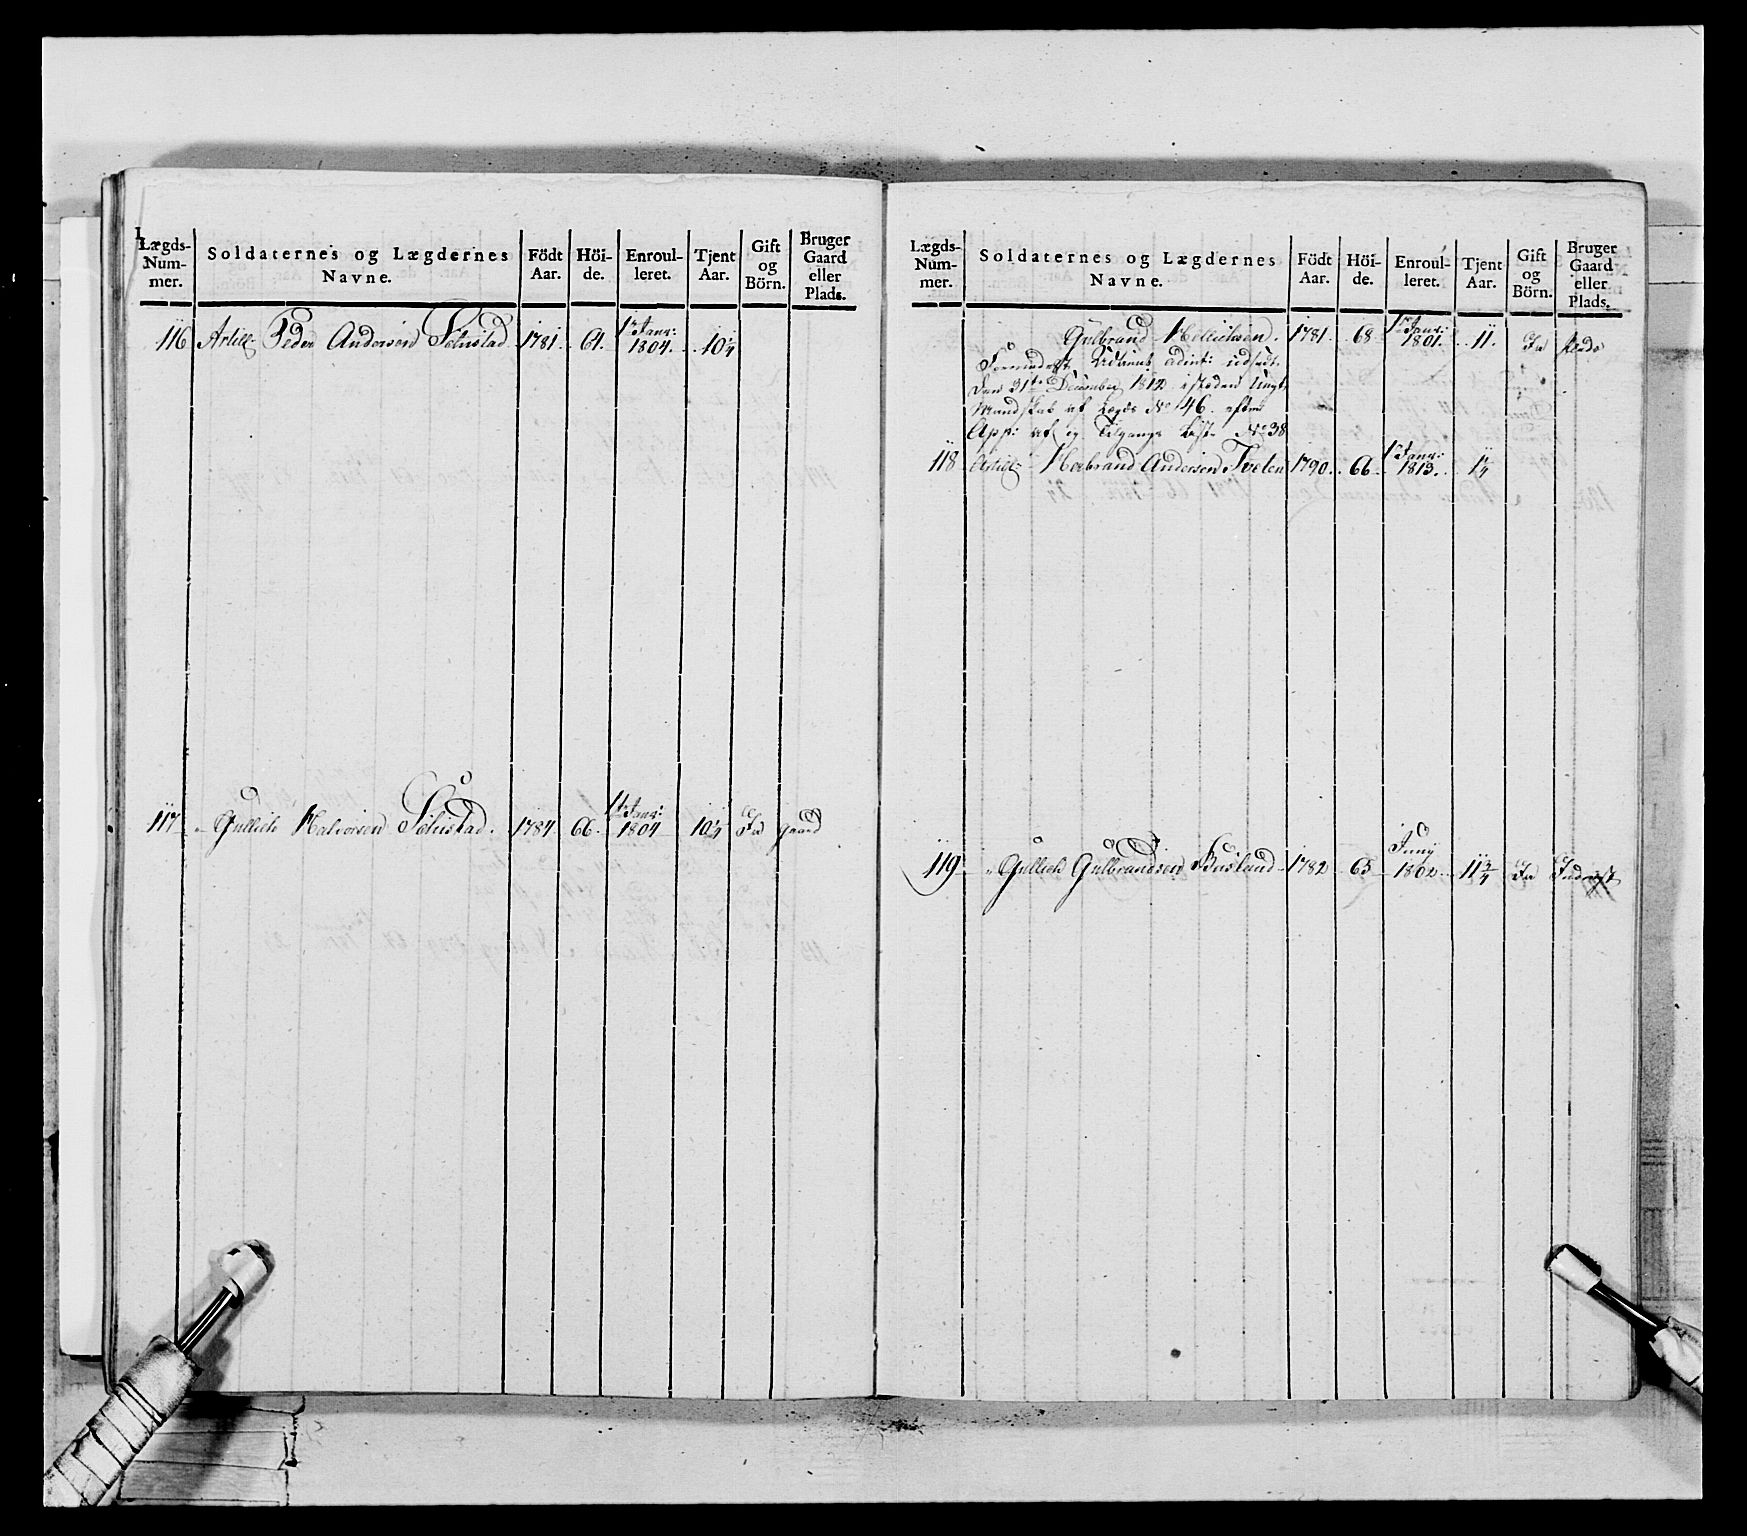 Lægds-Num-mer. Soldaternes og Lægdernes Navne. Födt Aar. Höi-de. Enroul-leret. Tjent Aar. Gift og Börn. Bruger Gaard eller Plads.
116 Artill: Peder Andersen 1781. 64. 1te Janr: 1804. 10 1/4
117 " Gullich Halvorsen 1784 66. 1te Janr: 1804 10 1/4 Ja gaard
Lægds-Num-mer. Soldaternes og Lægdernes Navne. Födt Aar. Höi-de. Enroul-leret. Tjent Aar. Gift og Börn. Bruger Gaard eller Plads.
Gulbrand 1781. 68 1te Janr: 1801. 11. Ja plads
udsadt
den 31te December 1812 istæden ungt
Mandskab af Lægds No 46. efter
App: af og Tilgangs Liste No 38
118 Artill: Herbrand Andersen Tveten 1790. 66. 1te Janr: 1813. 1 1/4
119 " Gullich Gulbrandsen Busland 1782 65 Juny 1802. 11 3/4 Ja